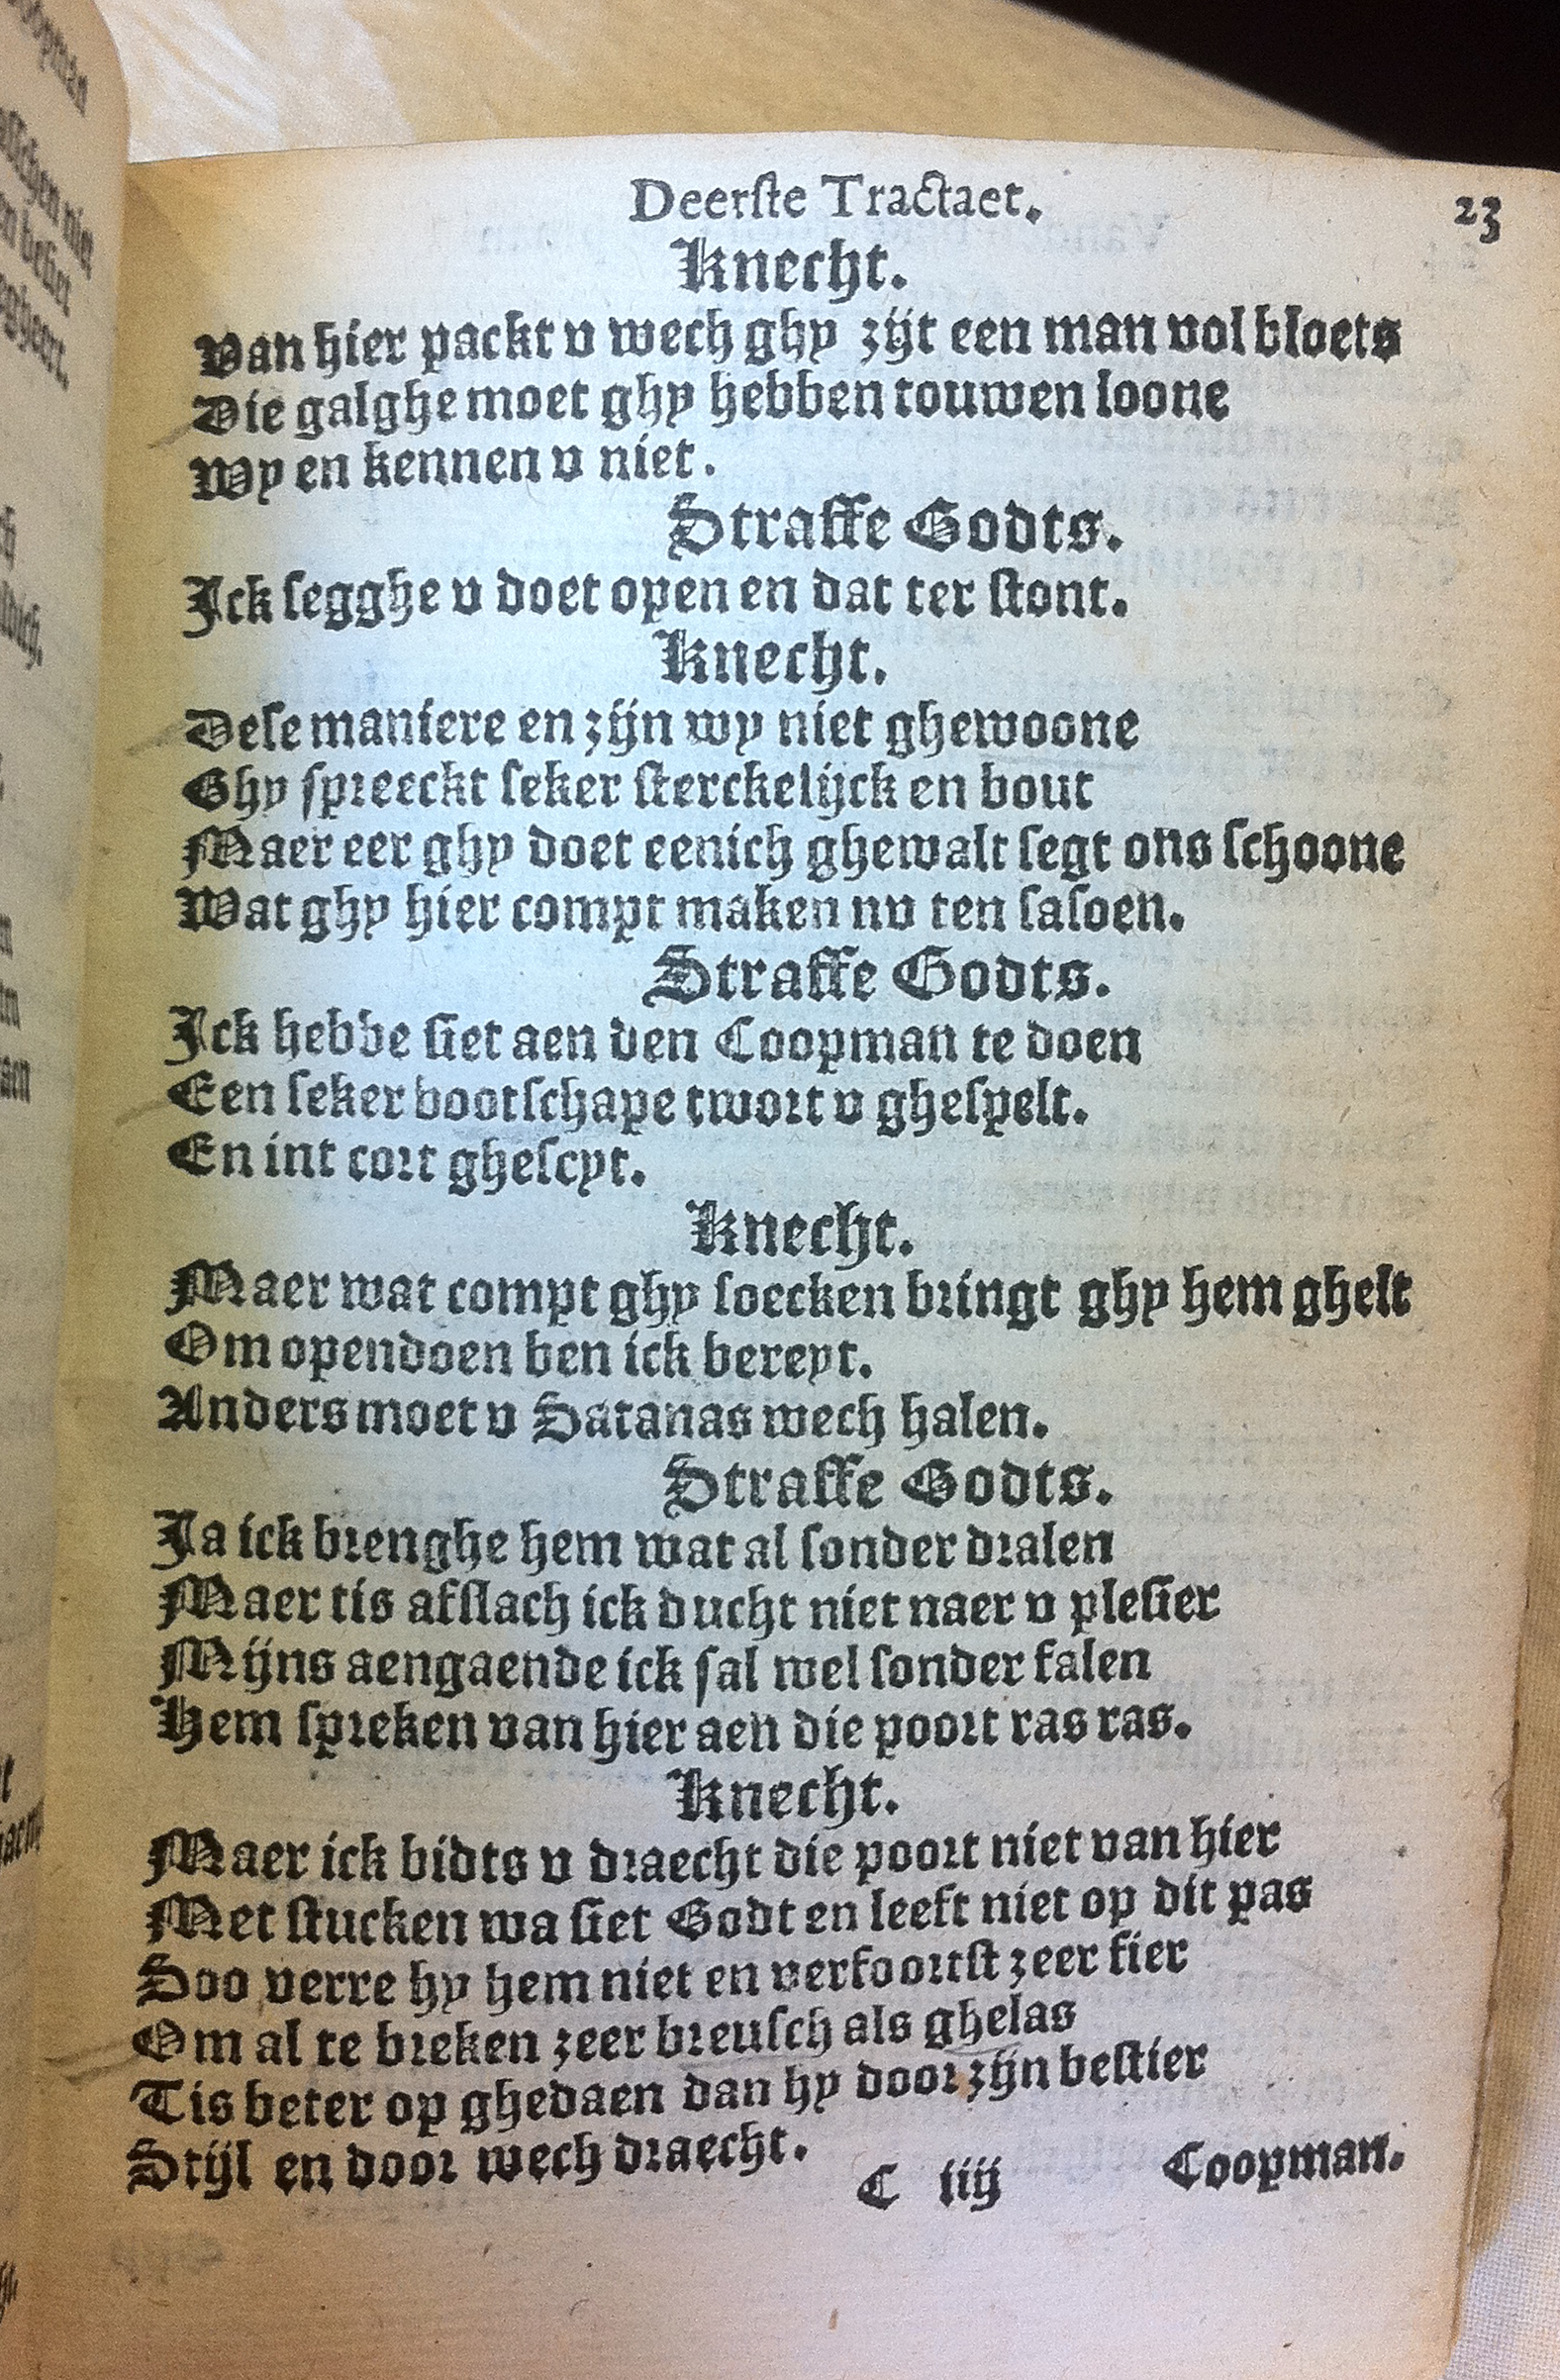 Deerste Tractaet. 23
Knecht.
Van hier packt v wech ghy zijt een man vol bloets
Die galghe moet ghy hebben touwen loone
Wy en kennen v niet.
Straffe Godts.
Ick segghe v doet open en dat ter stont.
Knecht.
Dese maniere en zijn wy niet ghewoone
Ghy spreeckt seker sterckelijck en bout
Maer eer ghy doet eenich ghewalt segt ons schoone
Wat ghy hier compt maken nv ten sasoen.
Straffe Godts.
Ick hebbe siet aen den Coopman te doen
Een seker bootschape twort v ghespelt.
En int cort ghescyt.
Knecht.
Maer wat compt ghy soecken bringt ghy hem ghelt
Om opendoen ben ick bereyt.
Anders moet v Satanas wech halen.
Straffe Godts.
Ja ick brenghe hem wat al sonder dralen
Maer tis afslach ick ducht niet naer v plesier
Mijns aengaende ick sal wel sonder falen
Hem spreken van hier aen die poort ras ras.
Knecht.
Maer ick bidts v draecht die poort niet van hier
Met stucken wa siet Godt en leeft niet op dit pas
Soo verre hy hem niet en verfoortst zeer fier
Om al te breken zeer breusch als ghelas
Tis beter op ghedaen dan hy door zijn bestier
Stijl en door wech draecht.
C iij Coopman.